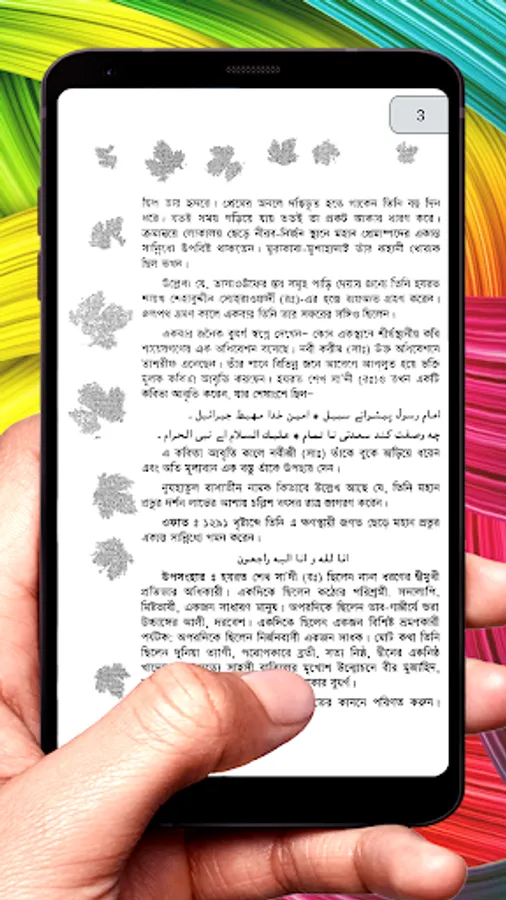 3
তাঁর হৃদয়ে। প্রেমের অনলে দগ্ধিভূত হতে থাকেন তিনি বহু দিন
ধরে। যতই সময় গড়িয়ে যায় ততই তা প্রকট আকার ধারণ করে।
ক্রমান্বয়ে লোকালয় ছেড়ে নীরব-নির্জন স্থানে মহান প্রেমাস্পদের একান্ত
সান্নিধ্যে উপবিষ্ট থাকতেন। মুরাকাবা-মুশাহাদাই তাঁর রূহানী খোরাক
ছিল তখন।
উল্লেখ্য যে, তাসাওউফের স্তর সমূহ পাড়ি দেয়ার জন্যে তিনি হযরত
শায়খ শেহাবুদ্দীন সোহরাওয়ার্দী (রঃ)-এর হস্তে বায়আত গ্রহণ করেন।
জলপথ ভ্রমণ কালে একবার তিনি তার সফরের সঙ্গিও ছিলেন।
একবার জনৈক বুযুর্গ স্বপ্নে দেখেন– কোন একস্থানে শীর্ষস্থানীয় কবি
গণের এক অধিবেশন বসেছে। নবী করীম (সাঃ) উক্ত অধিবেশনে
তাশরীফ এনেছেন। তাঁর শানে বিভিন্ন জনে আবেগে আপ্লুত হয়ে ভক্তি
মূলক কবিতা আবৃতি করছেন। হযরত শেখ সা'দী (রঃ)ও তখন একটি
কবিতা আবৃতি করেন, যার শেষাংশে ছিল–
امام رسول پیشوائے سبیل * امین خدا مهبط جبرائیل ۔
چه وصفت کند سعدئی نا تمام * علیك السلام اے نبی الحرام ۔
এ কবিতা আবৃতি কালে নবীজী (সাঃ) তাঁকে বুকে জড়িয়ে ধরেন
এবং অতি মূল্যবান এক বস্তু তাঁকে উপহার দেন।
নুযহাতুল বাসাতীন নামক কিতাবে উল্লেখ আছে যে, তিনি মহান
প্রভুর দর্শন লাভের আশায় চল্লিশ বৎসর রাত্র জাগরণ করেন।
ওফাত : ১২৯১ খৃষ্টাব্দে তিনি এ ক্ষণস্থায়ী জগত ছেড়ে মহান প্রভুর
একান্ত সান্নিধ্যে গমন করেন।
انا لله و انا الیه راجعون
উপসংহার : হযরত শেখ সা'দী (রঃ) ছিলেন নানা ধরণের দ্বীমুখী
প্রতিভার অধিকারী। একদিকে ছিলেন কঠোর পরিশ্রমী, সদালাপি,
মিষ্টভাষী, একজন সাধারণ মানুষ। অপরদিকে ছিলেন ভাব-গাম্ভীর্যে ভরা
উচ্চাসের আলী, দরবেশ। একদিকে ছিলেন একজন বিশিষ্ট ভ্রমণকারী
পর্যটক; অপরদিকে ছিলেন নির্জনবাসী একজন সাধক। মোট কথা তিনি
ছিলেন দুনিয়া ত্যাগী, পরোপকারে ব্রতী, সত্য নিষ্ঠ, দ্বীনের একনিষ্ঠ
সাহসী বাতিলের মুখোশ উন্মোচনে বীর মুজাহিদ,
বুযুর্গ।
কাননে পরিণত করুন।